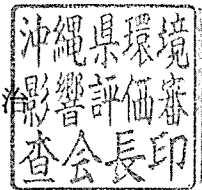 沖縄県環境
治影響評価審
査会長印